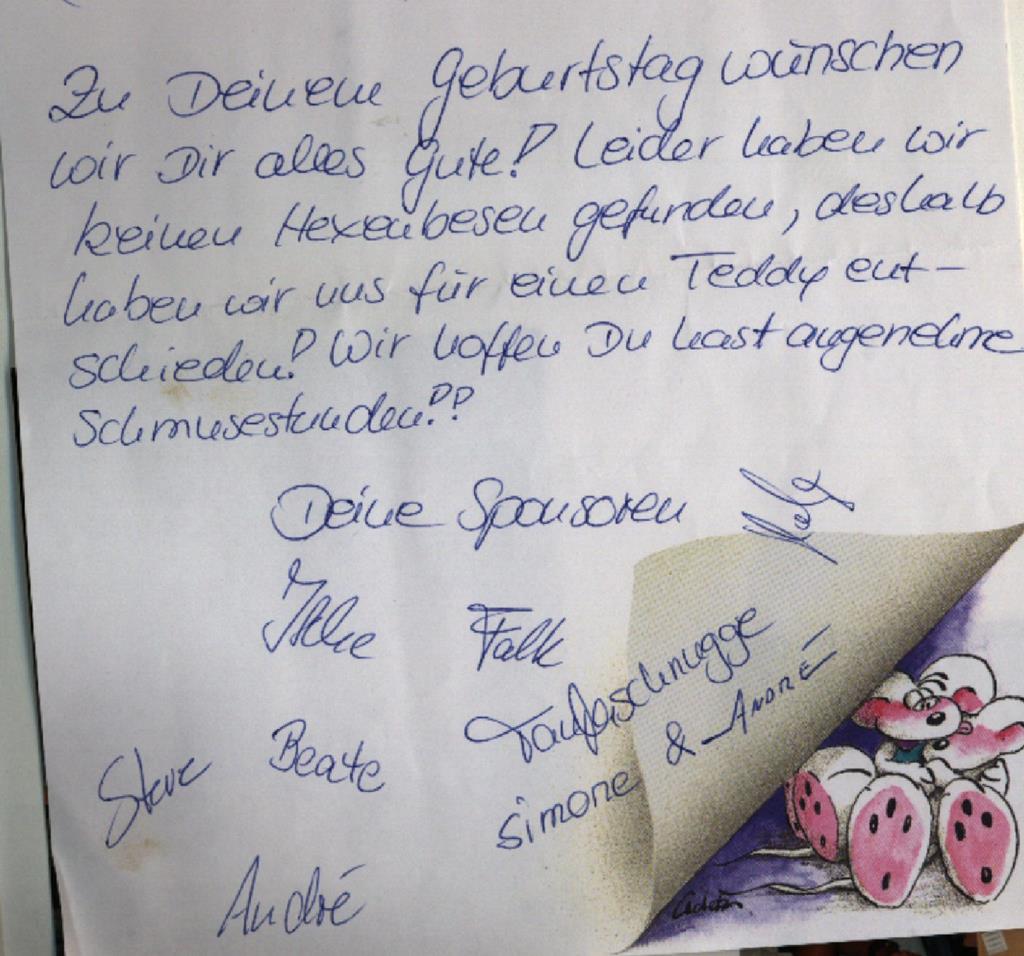 Zu Deinem Geburtstag wünschen
wir Dir alles Gute! Leider haben wir
keinen Hexenbesen gefunden, deshalb
haben wir uns für einen Teddy ent-
schieden! Wir hoffen Du hast angenehme
Schmusestunden!!
Deine Sponsoren
Falk
Simone & André
Steve Beate
André